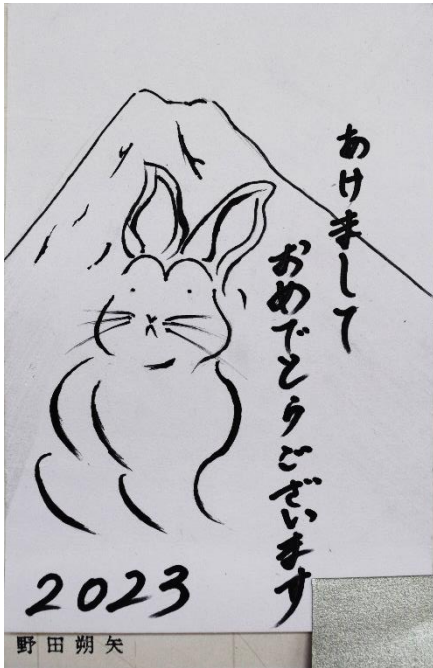 あけまして
おめでとうございます
2023
野田朔矢